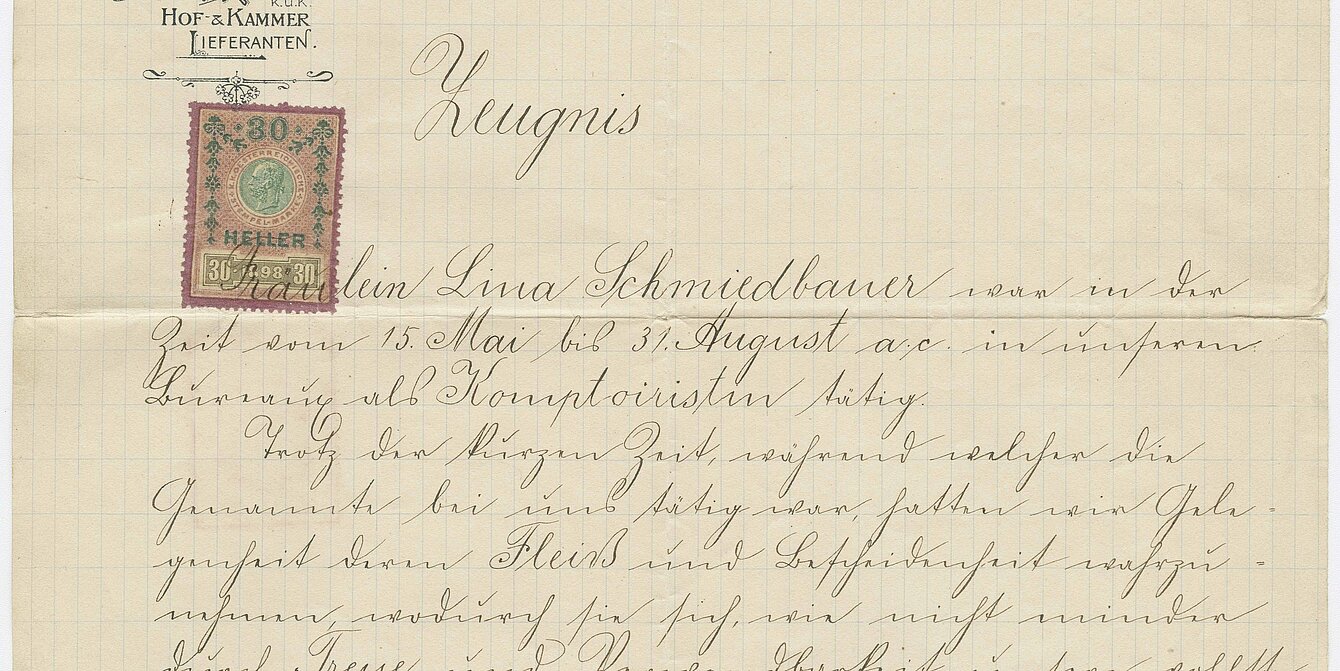 K.U.K.
HOF- & KAMMER
LIEFERANTEN.
Zeugnis
30
K.K. OESTERREICHISCHE STEMPEL-MARKE
HELLER
30 1898 30
Fräulein Lina Schmiedbauer war in der
Zeit vom 15. Mai bis 31. August a.c. in unseren
Bureaux als Komptoiristin tätig.
Trotz der kurzen Zeit, während welcher die
Genannte bei uns tätig war, hatten wir Gele-
genheit deren Fleiß und Bescheidenheit wahrzu-
nehmen, wodurch sie sich, wie nicht minder
durch Treue und